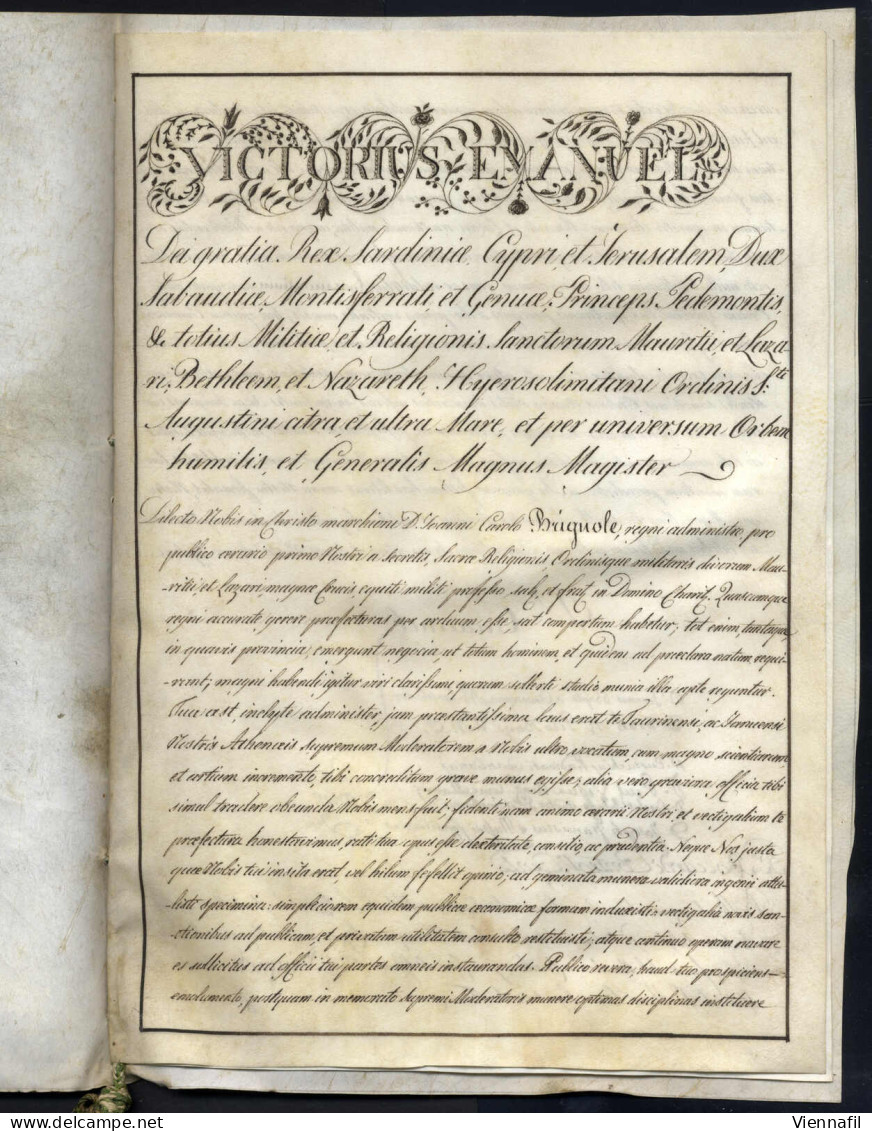 VICTORIUS EMANUEL
Dei gratia Rex Sardiniæ, Cypri, et Jerusalem, Dux
Sabaudiæ, Montisferrati, et Genuæ, Princeps Pedemontis,
& totius Militiæ, et Religionis Sanctorum Mauritii, et Laza-
ri, Bethleem, et Nazareth, Hyerosolimitani Ordinis S.ti
Augustini citra, et ultra Mare, et per universum Orbem
humilis, et Generalis Magnus Magister
Dilecto Nobis in Christo marchioni D. Joanni Carolo Brignole, regni administro, pro
publico ærario primo Nostri a secretis, Sacræ Religionis, Ordinisque militaris divorum Mau-
-ritii, et Lazari, magnæ Crucis equiti, militi professo, sal, et frat, in Domino Charit. Quascumque
regni accurate gerere præfecturas per arduum esse, sat compertum habetur; tot enim, tantaque,
in quavis provincia, emergunt negocia, ut totum hominem, et quidem ad præclara natum, requi-
-rant; magni habendi igitur viri clarissimi, quorum sollerti studio munia illa apte reguntur.
Tua est, inclyte administer, jam præstantissima laus erat te Taurinensis, ac Januensi
Nostris Athenæis supremum Moderatorem a Nobis ultro vocatum, cum magno scientiarum
et artium incremento, tibi concreditum grave munus egisse; alia vero graviora officia tibi
simul tradere obeunda Nobis mens fuit; fidenti nam animo ærarii Nostri et vectigalium te
præfectura honestavimus, rati tua opus esse dexteritate, consilio, ac prudentia. Neque Nos justa
quæ Nobis tui insita erat, vel hilum fefellit opinio; ad geminata munera validiora ingenii attu-
listi specimina: simpliciorem equidem publicæ œconomicæ formam induxisti: vectigalia novis san-
-ctionibus ad publicam, et privatam utilitatem consulto restituisti; atque continuo operam navare
es sollicitus ad officii tui partes omneis instaurandas. Publico revera, haud tuo prospiciens
emolumento, postquam in memorato supremi Moderatoris munere optimas disciplinas instituere
Viennafil